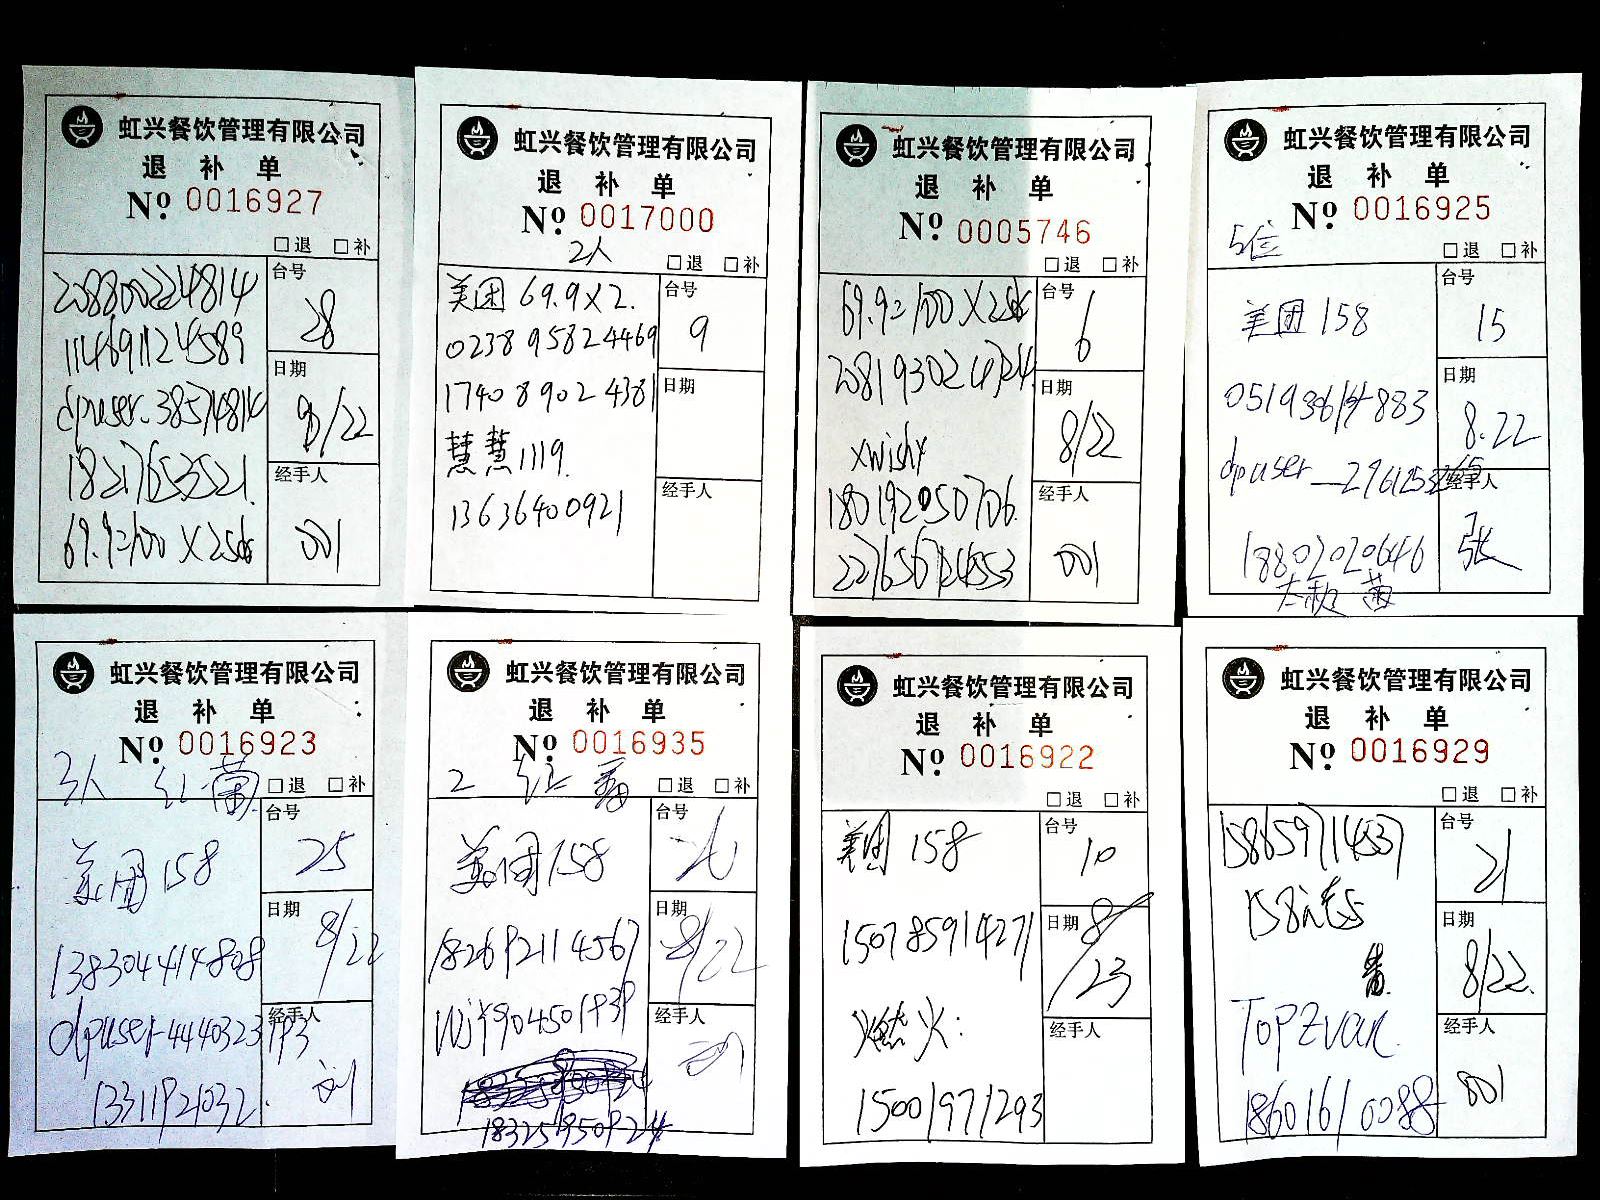 虹兴餐饮管理有限公司
退 补 单
Nº 0016927
□退 □补
208800224814
台号
28
1114691124589
日期
8/22
dpuser.38574814
18217653521
经手人
001
虹兴餐饮管理有限公司
退 补 单
Nº 0017000
2人
□退 □补
美团 69.9×2.
台号
9
0238 9582 4469
1740 8902 4381
日期
慧慧1119.
经手人
13636400921
虹兴餐饮管理有限公司
退 补 单
Nº 0005746
□退 □补
台号
6
208193024724
日期
8/22
xwishx
经手人
180192050706.
001
虹兴餐饮管理有限公司
退 补 单
Nº 0016925
5位
□退 □补
美团 158
台号
15
日期
8.22
经手人
18802020646
张
虹兴餐饮管理有限公司
退 补 单
Nº 0016923
3人
□退 □补
美团 158
台号
25
138304414808
日期
8/22
dpuser-4440323193
经手人
13311921032.
刘
虹兴餐饮管理有限公司
退 补 单
Nº 0016935
2
□退 □补
美团 158
台号
182692114567
日期
8/22
wjy904501939
经手人
刘
183251950924
虹兴餐饮管理有限公司
退 补 单
Nº 0016922
□退 □补
美团 158
台号
10
150785914271
日期
8/23
燃火:
经手人
15001971293
虹兴餐饮管理有限公司
退 补 单
Nº 0016929
□退 □补
158659714537
台号
21
日期
8/22.
经手人
18601610088
001